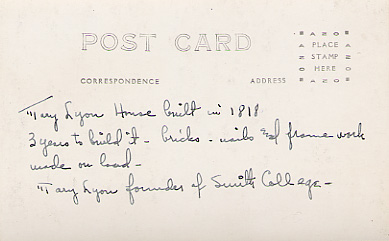 POST CARD
AZO
PLACE
STAMP
HERE
AZO
CORRESPONDENCE
ADDRESS
Mary Lyon House built in 1818
3 years to build it - bricks - nails and frame work
made on land -
Mary Lyon founder of Smith College -